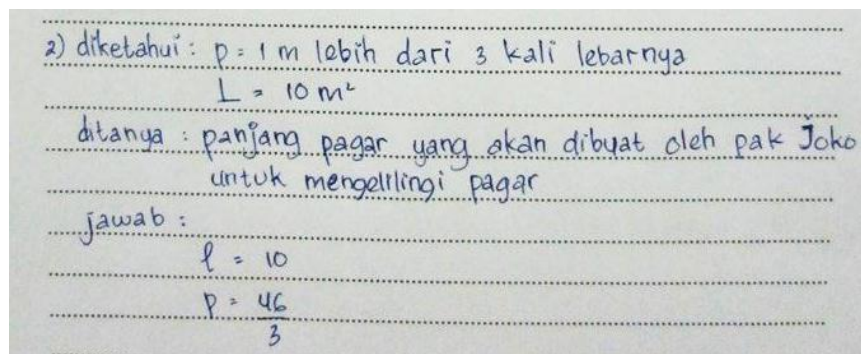 2) diketahui : p = 1 m lebih dari 3 kali lebarnya
L = 10 m²
ditanya : panjang pagar yang akan dibuat oleh pak Joko
untuk mengelilingi pagar
jawab :
l = 10
p = 46
3